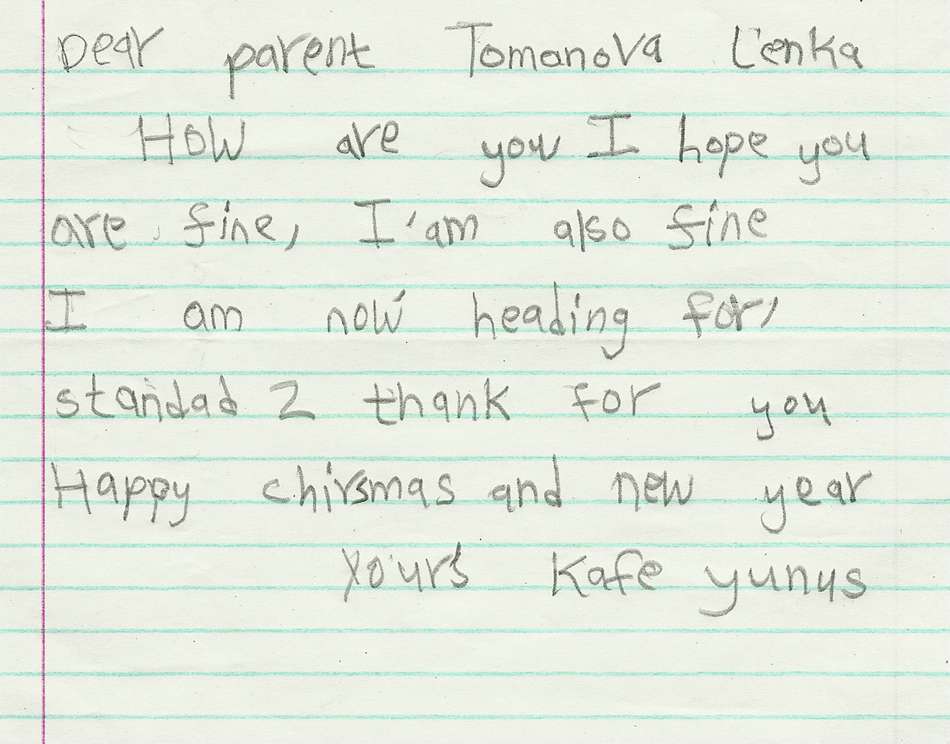 Dear parent Tomanova Lenka
How are you I hope you
are fine, I'am also fine
I am now heading for,
standad 2 thank for you
Happy chirsmas and new year
Yours Kafe yunus